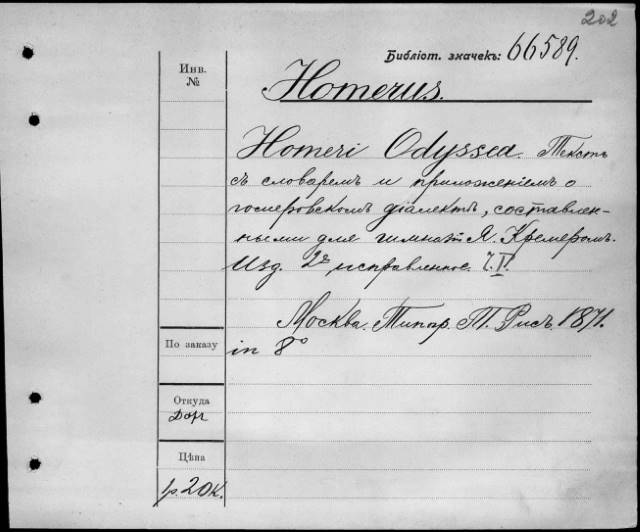 202
Библіот. значекъ: 66589.
Инв.
№
Homerus.
Homeri Odyssea. Текстъ
съ словаремъ и приложеніемъ о
гомеровскомъ діалектѣ, составлен-
ными для гимназ. Я. Кремеромъ.
Изд. 2е исправленное.
Москва. Типогр. Т. Рисъ. 1871.
По заказу
in 8°
Откуда
Дар
Цѣна
1р. 20 к.